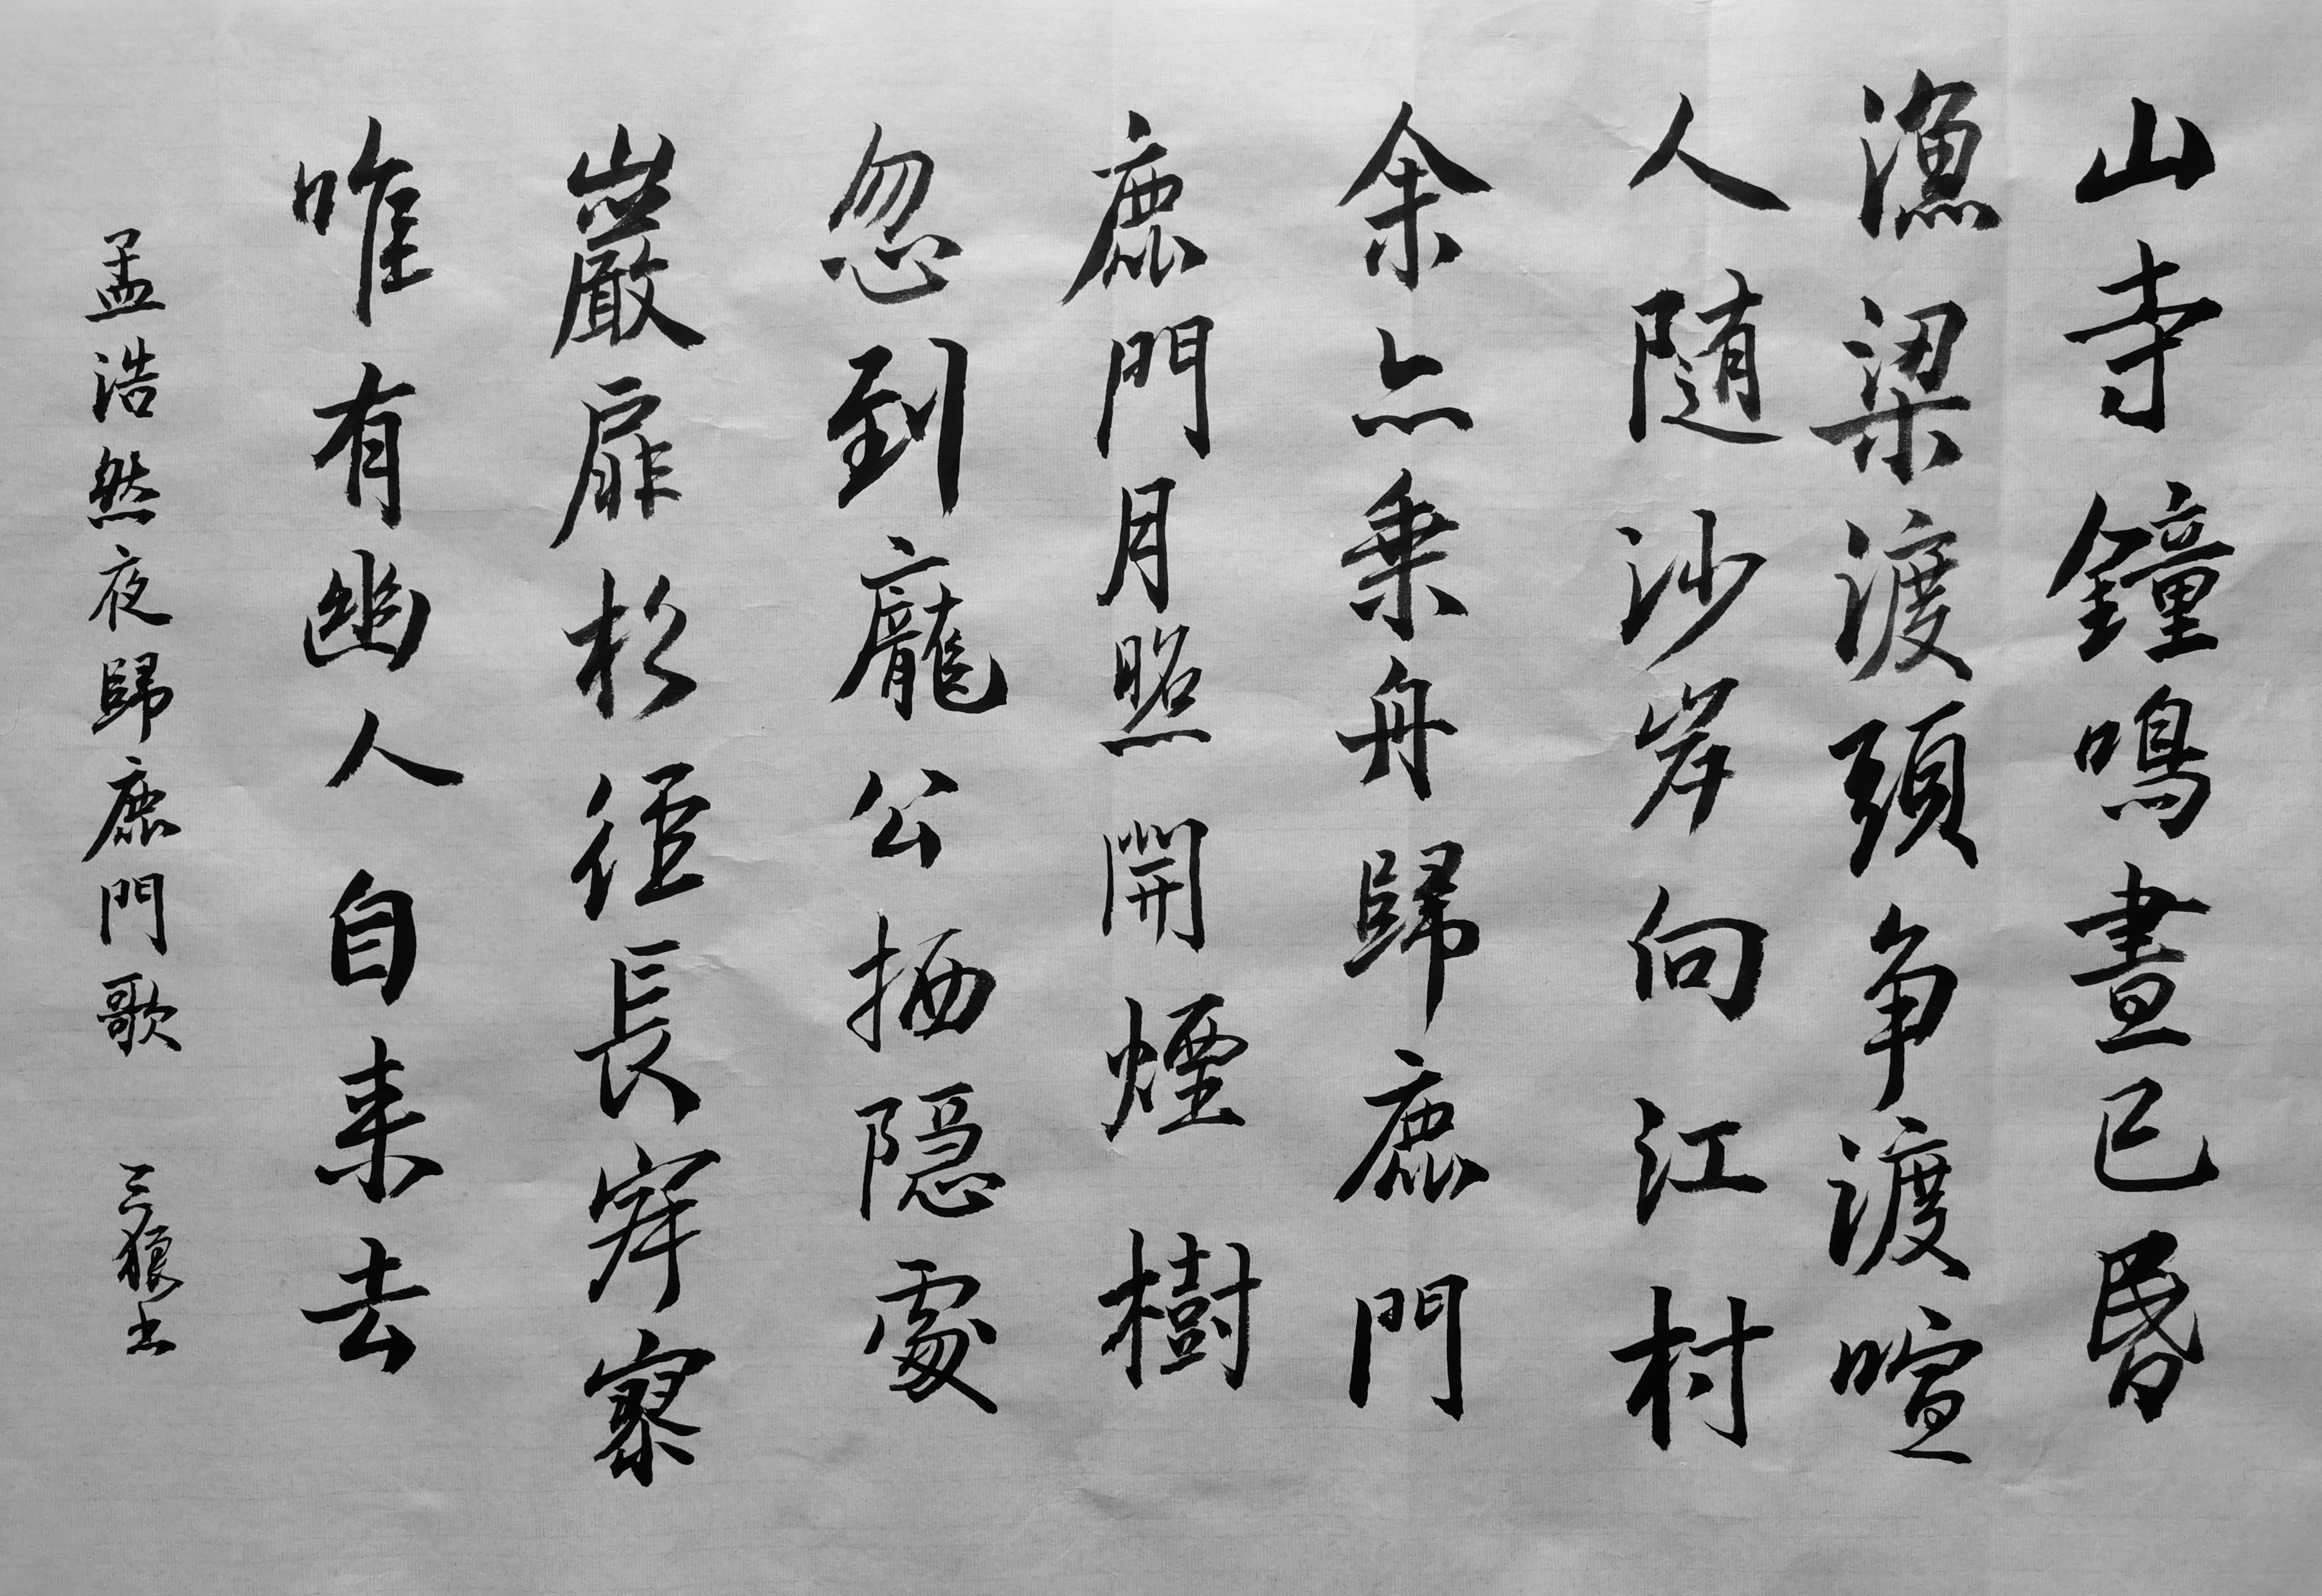 山寺鐘鳴晝已昏
漁梁渡頭争渡喧
人随沙岸向江村
余亦乗舟歸鹿門
鹿門月照開煙樹
忽到龐公栖隠處
巖扉松徑長寂寥
唯有幽人自来去
孟浩然夜歸鹿門歌 三猿書